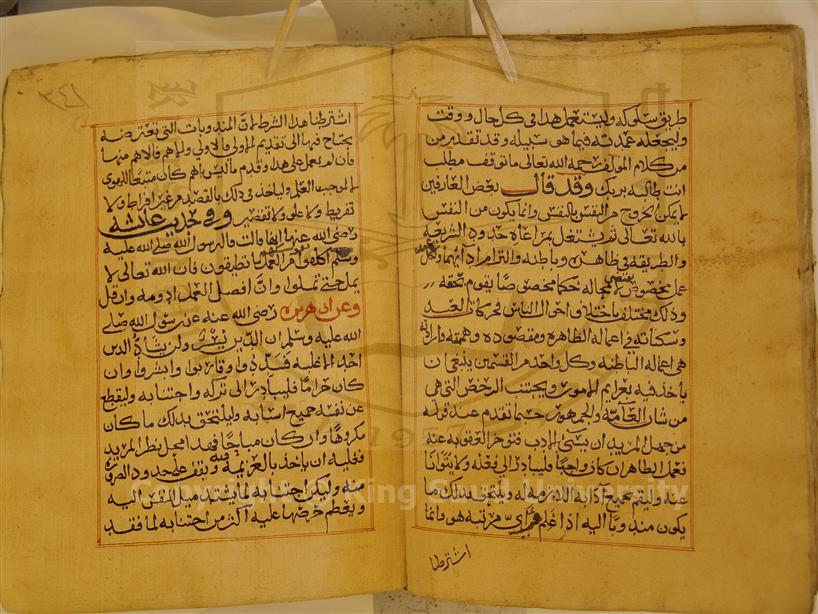 طريق سلوكه وليستعمل هذا في كل حال ووقت
وليجعله عمدته فيما هو سبيله وقد تقدم من
من كلام المولف رحمه الله تعالى ما توقف مطلب
انت طالبه بربك وقد قال بعض العارفين
لا يكن الخروج من النفس بالنفس وانما يكون من النفس
بالله تعالى ثم يشتغل بمراعاة حدود الشريعة
والطريقة في ظاهره وباطنه والتزام ادابهما
عمل مخصوص حكما مخصوصا يقوم بحقه
وذلك مختلف باختلاف احوال الناس فحركات العبد
وسكناته في اعماله الظاهرة ومقصوده وهمته وارادته
هي اعماله الباطنة وكل واحد من القسمين ينبغي ان
ياخذ فيه بعزايم الامور ويجتنب الرخص التي هي
من شان العامة والجمهور حسبما تقدم عند قوله
من جهل المريد ان يسئ الادب فتوخر العقوبة عنه
فعمل الظاهر ان كان واجبا فليبادر الى فعله ولا يتوانا
عنه وليتم بجميع آدابه اللازمة له ويلتحق بذلك ما
يكون مندوبا اليه اذا علم مرتبته هو بانما
اشترطنا
٣٤١
اشترطنا هذا الشرط لان المندوبات التي تعترضه
يحتاج فيها الى تقديم الاولى فالاولى والاهم فالاهم منها
فان لم يعمل على هذا وقدم ما ليس باهم كان متبعا للهوى
لا لموجب العلم ولياخذ في ذلك بالقصد من غير افراط ولا
تفريط ولا غلو ولا تقصير وفي حديث عائشة
رضي الله عنها انها قالت قال رسول الله صلى الله عليه
وسلم اكلفوا من العمل ما تطيقون فان الله تعالى لا
يمل حتى تملوا وان افضل العمل ادومه وان قل
وعن ابي هريرة رضي الله عنه عن رسول الله صلى
الله عليه وسلم ان الدين يسر ولن يشاد الدين
احد الا غلبه فسددوا وقاربوا وابشروا وان
كان حراما فليبادر الى تركه واجتنابه وليقطع
عن نفسه جميع اسبابه ويلتحق بذلك ما كان
مكروها وان كان مباحا فهذا محل نظر المريد
فعليه ان ياخذ بالعزيمة فيه ويقف على حدود الضرورة
منه وليكن اجتنابه لما يشتد ميل النفس اليه
ويعظم حرصها عليه آكثر من اجتنابه لما فقد
Copyright © King Saud University
1957